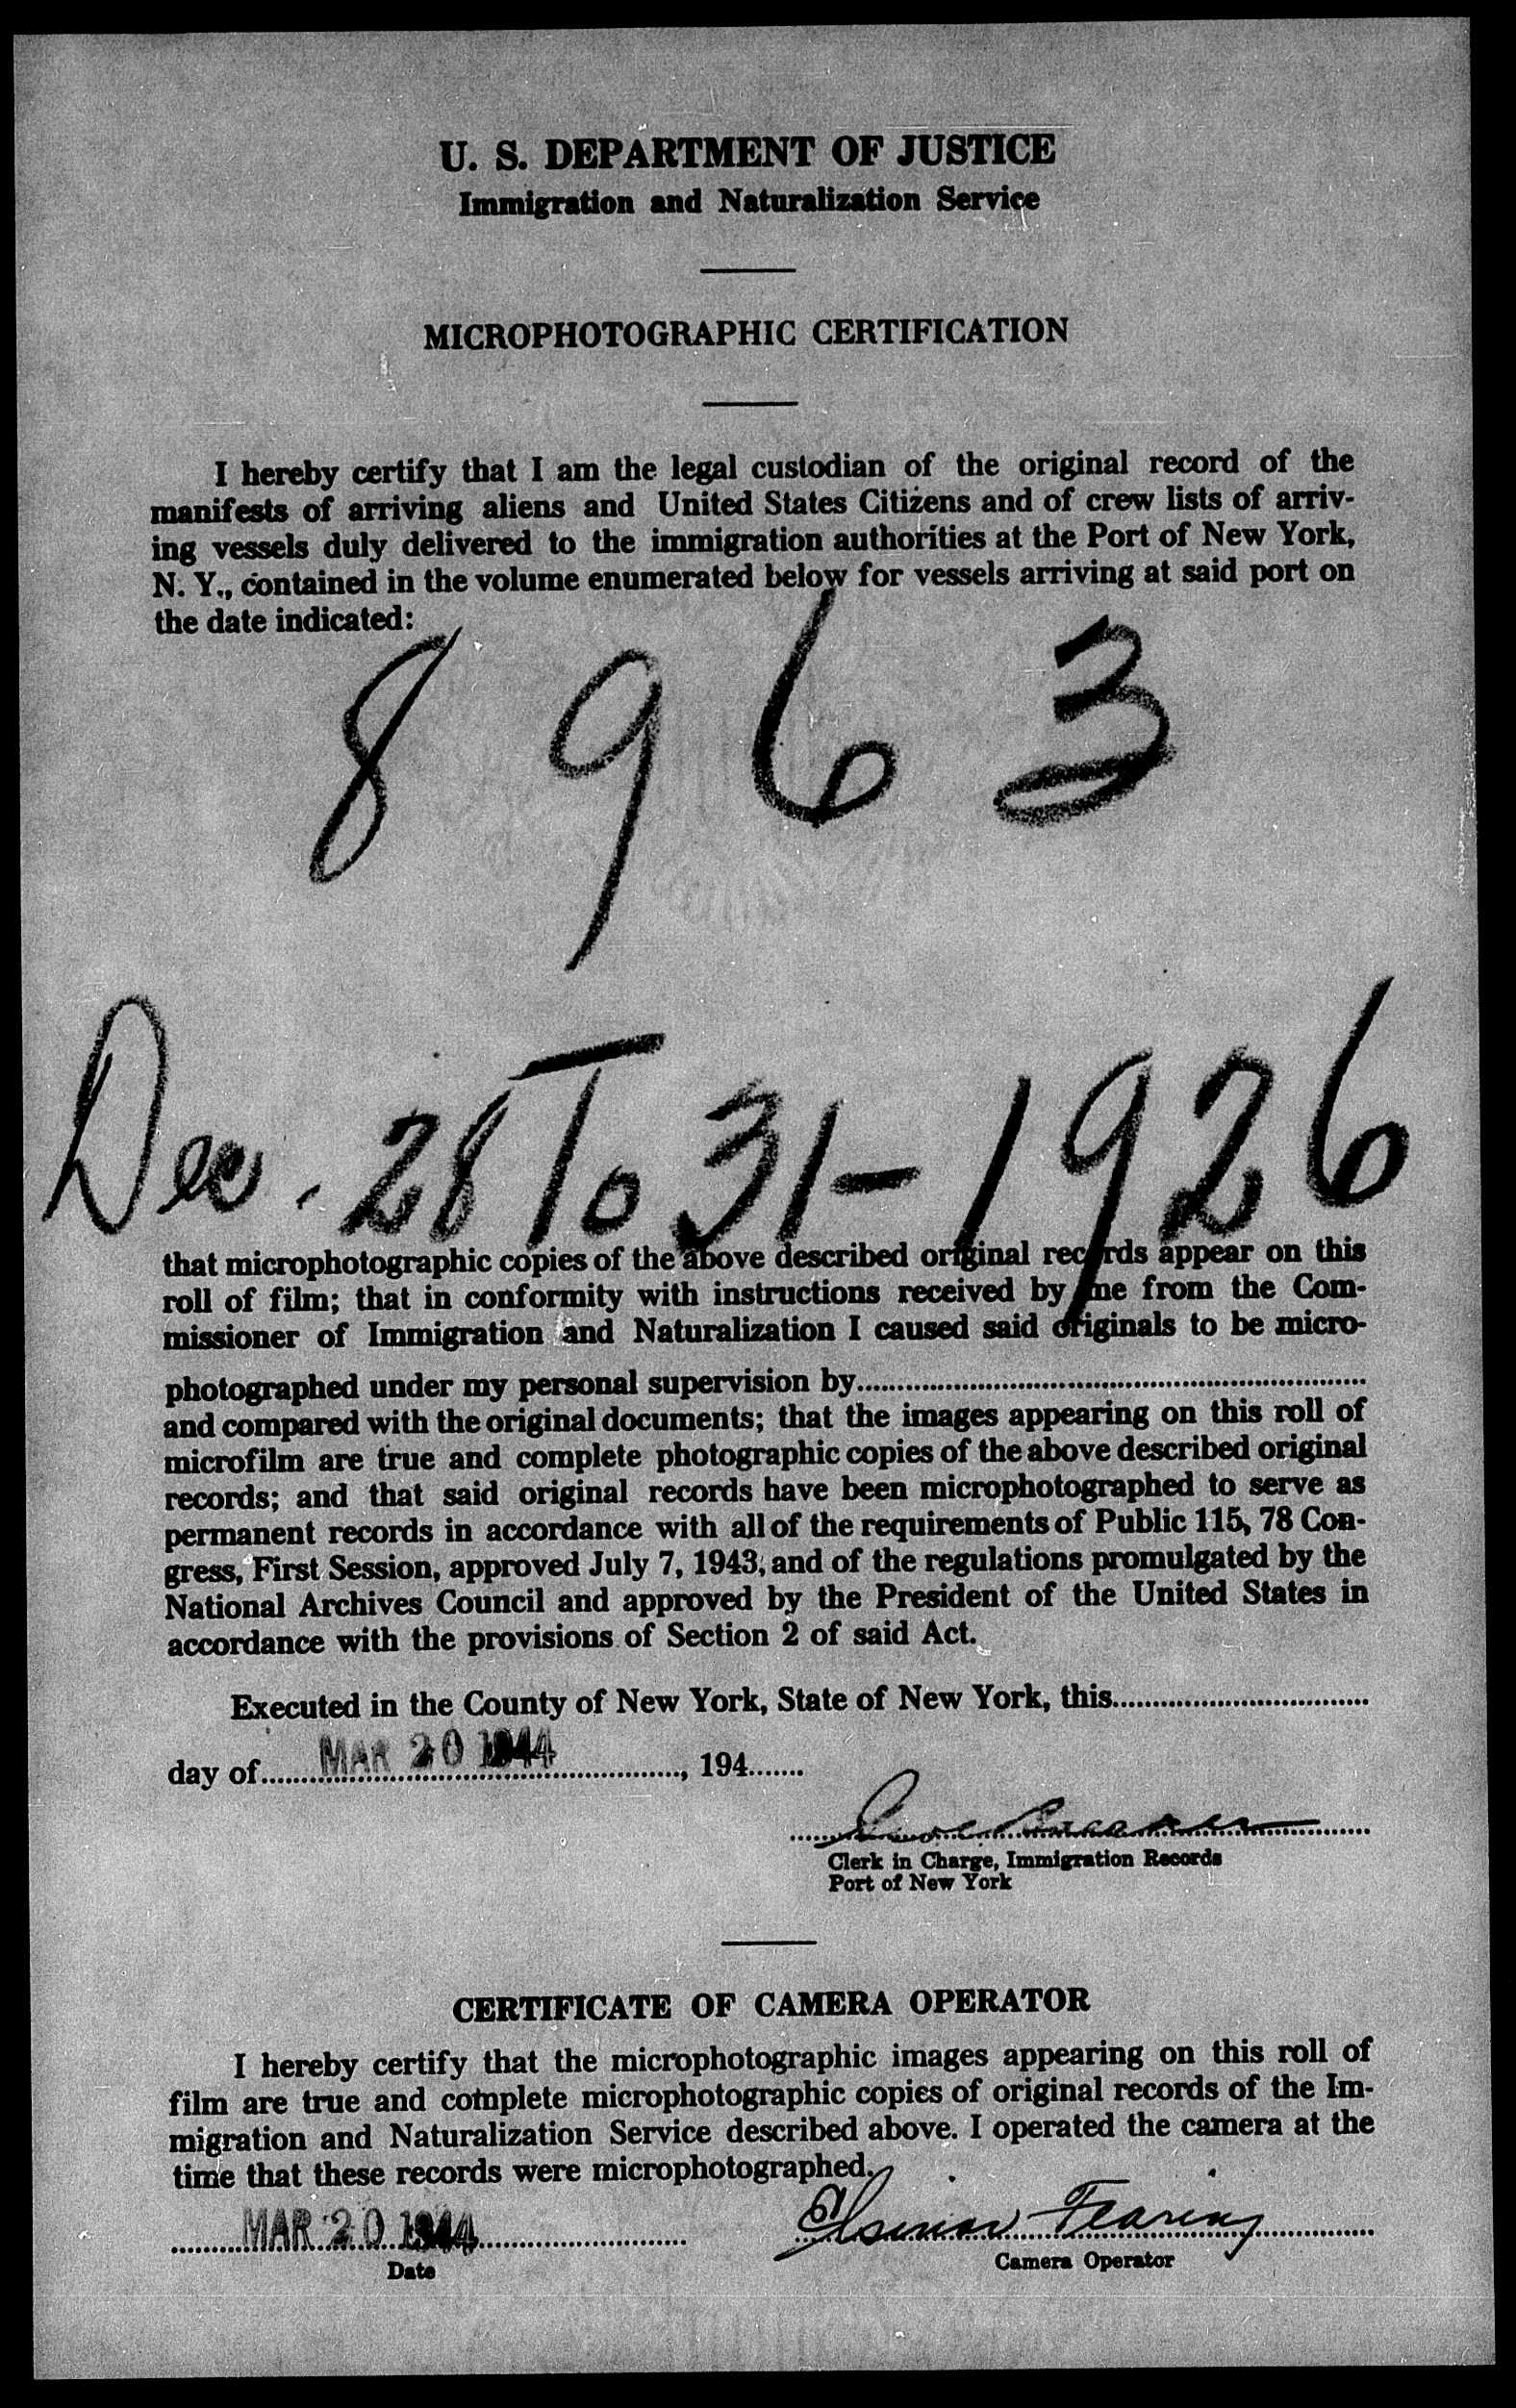 U. S. DEPARTMENT OF JUSTICE
Immigration and Naturalization Service
MICROPHOTOGRAPHIC CERTIFICATION
I hereby certify that I am the legal custodian of the original record of the
manifests of arriving aliens and United States Citizens and of crew lists of arriv-
ing vessels duly delivered to the immigration authorities at the Port of New York,
N. Y., contained in the volume enumerated below for vessels arriving at said port on
the date indicated:
8963
Dec. 28 To 31-1926
that microphotographic copies of the above described original records appear on this
roll of film; that in conformity with instructions received by me from the Com-
missioner of Immigration and Naturalization I caused said originals to be micro-
photographed under my personal supervision by
and compared with the original documents; that the images appearing on this roll of
microfilm are true and complete photographic copies of the above described original
records; and that said original records have been microphotographed to serve as
permanent records in accordance with all of the requirements of Public 115, 78 Con-
gress, First Session, approved July 7, 1943, and of the regulations promulgated by the
National Archives Council and approved by the President of the United States in
accordance with the provisions of Section 2 of said Act.
Executed in the County of New York, State of New York, this
day of MAR 20 1944, 194
Clerk in Charge, Immigration Records
Port of New York
CERTIFICATE OF CAMERA OPERATOR
I hereby certify that the microphotographic images appearing on this roll of
film are true and complete microphotographic copies of original records of the Im-
migration and Naturalization Service described above. I operated the camera at the
time that these records were microphotographed.
MAR 20 1944 Fearing
Date
Camera Operator